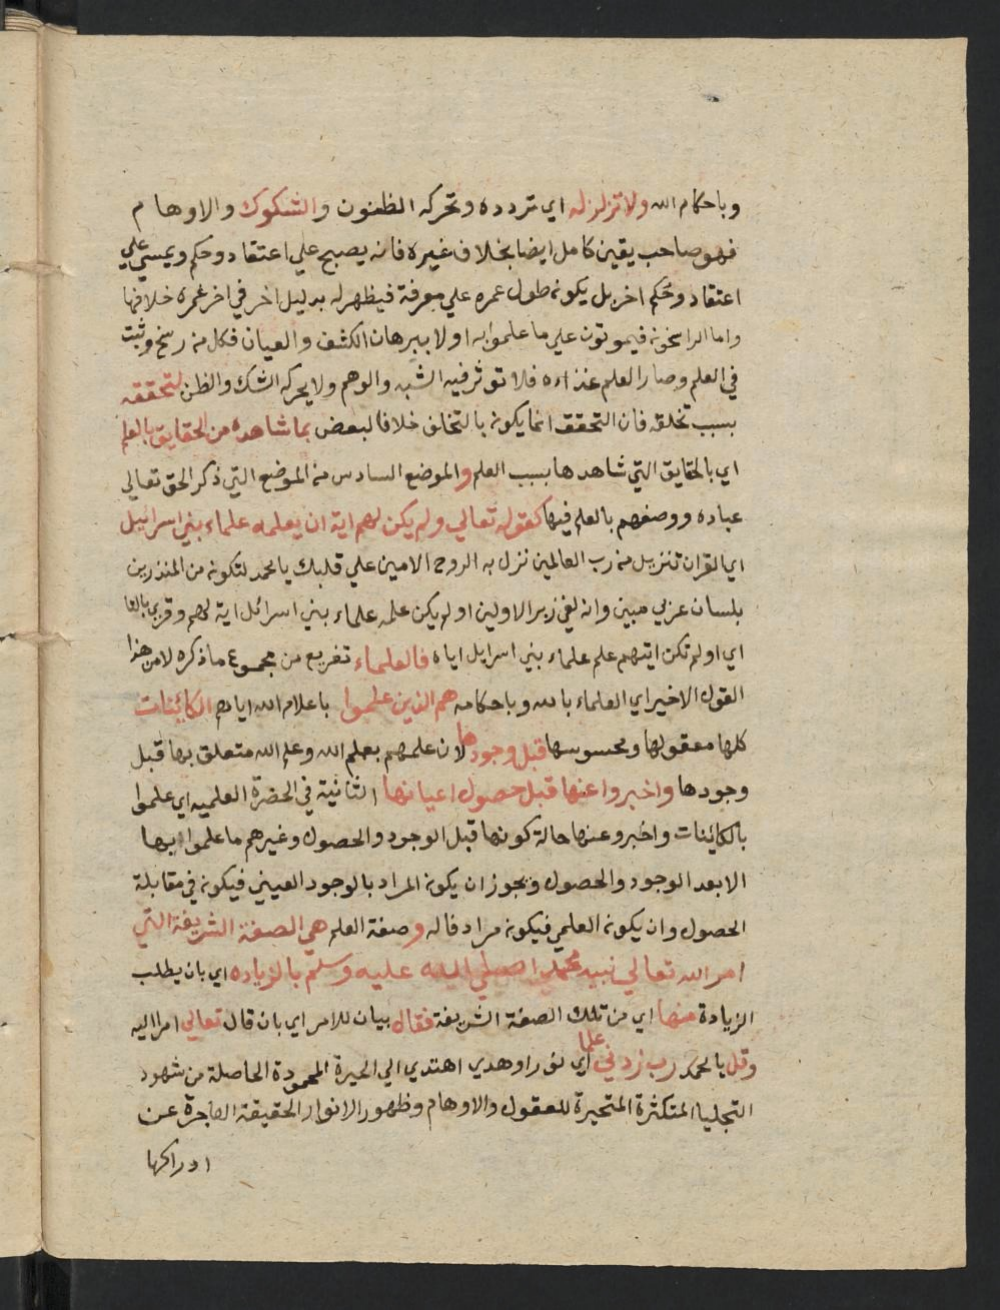 وباحكام الله ولا تزلزله اي تردده وتحركه الظنون والشكوك والاوهام
فهو صاحب يقين كامل ايضا بخلاف غيره فانه يصبح علي اعتقاد وحكم ويمسي علي
اعتقاد وحكم اخر بل يكون طول عمره علي معرفة فيظهر له بدليل اخر في اخر عمره خلافها
واما الراسخون فيموتون علي ما علموا به اولا ببرهان الكشف والعيان فكل من رسخ وثبت
في العلم وصار العلم غذاءه فلا توثر فيه الشبه والوهم ولا يحركه الشك والظن لتحققه
بسبب تخلقه فان التحقق انما يكون بالتخلق خلافا لبعض بما شاهده من الحقايق بالعلم
اي بالحقايق التي شاهدها بسبب العلم والموضع السادس من الموضع التي ذكر الحق تعالي
عباده ووصفهم بالعلم فيها كقوله تعالي ولم يكن لهم اية ان يعلمه علماء بني اسراييل
اي القران تنزيل من رب العالمين نزل به الروح الامين علي قلبك يا محمد لتكون من المنذرين
بلسان عربي مبين وانه لفي زبر الاولين اولم يكن علمه علماء بني اسرائل اية لهم وقري بالتا
اي اولم تكن ايتهم علم علماء بني اسرايل اياه فالعلماء تفريع من مجموع ما ذكره لا من هذا
القول الاخير اي العلماء بالله وباحكامه هم الذين علموا باعلام الله اياهم الكاينات
كلها معقولها ومحسوسها قبل وجودها لان علمهم بعلم الله وعلم الله متعلق بها قبل
وجودها واخبروا عنها قبل حصول اعيانها الثانية في الحضرة العلميه اي علموا
بالكائينات واخبرو عنها حالة كونها قبل الوجود والحصول وغيرهم ما علموا بها
الا بعد الوجود والحصول ويجوز ان يكون المراد بالوجود العيني فيكون في مقابلة
الحصول وان يكون العلمي فيكون مرادفا له وصفة العلم هي الصفة الشريفة التي
امر الله تعالي نبيه محمد صلي الله عليه وسلم بالزياده اي بان يطلب
الزيادة منها اي من تلك الصفة الشريفة فقال بيان للامر اي بان قال تعالي امرا اليه
وقل يا محمد رب زدني علما اي نورا وهدي اهتدي الي الحيرة المحمودة الحاصلة من شهود
التجليا المتكثرة المتحيرة للعقول والاوهام وظهور الانوار الحقيقة العاجزة عن
ادراكها